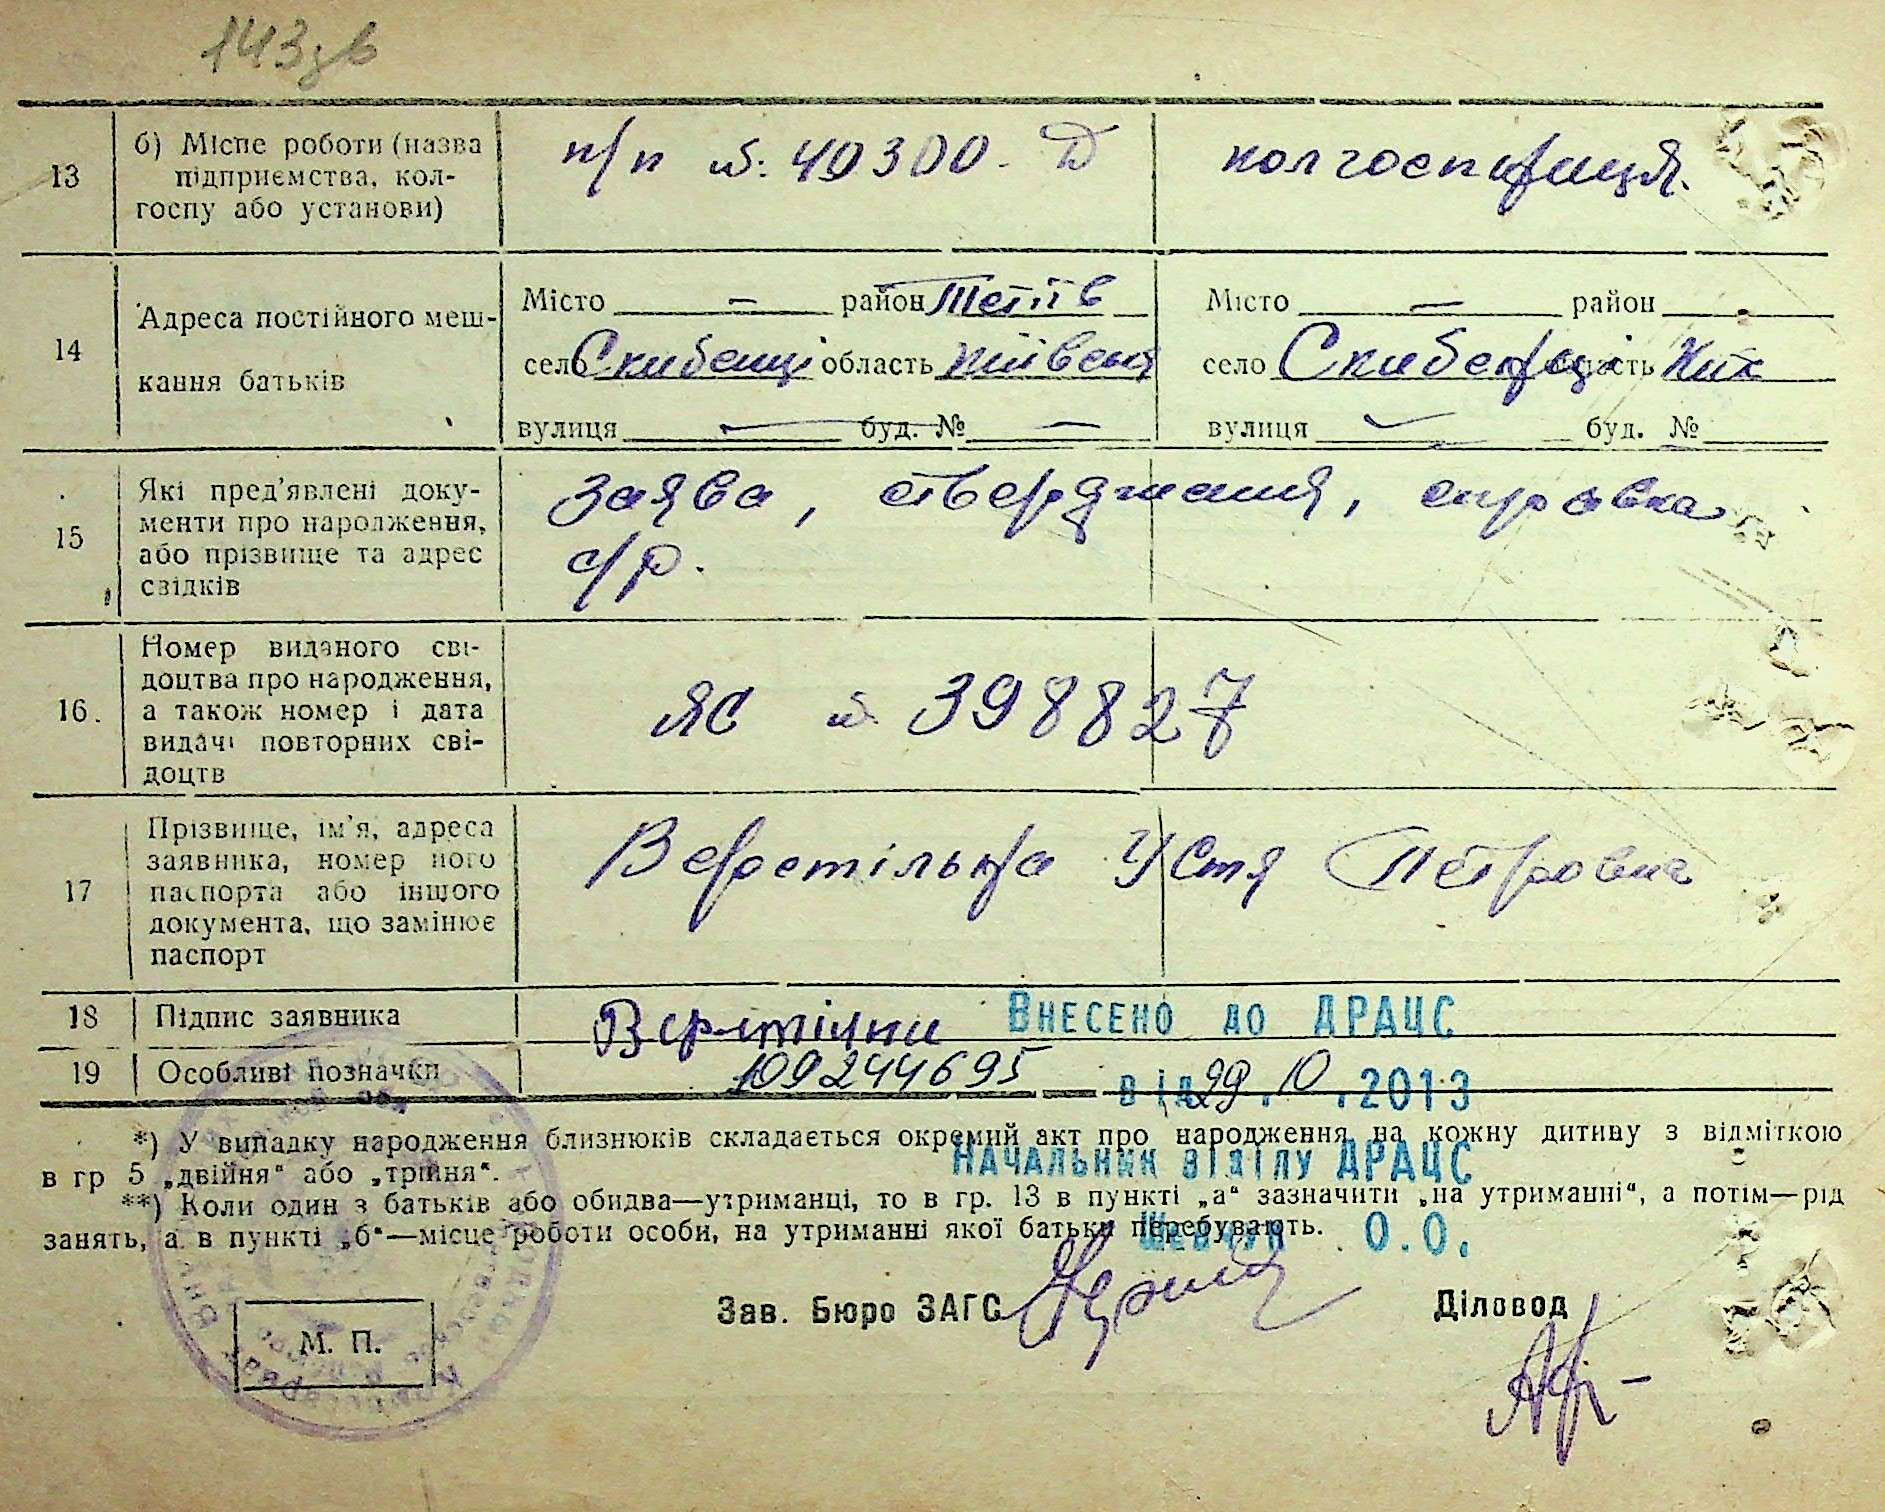 143зв
13
б) Місце роботи (назва
підприємства, кол-
госпу або установи)
п/п №: 40300 - Д
колгоспниця.
14
Адреса постійного меш-
кання батьків
Місто — район Тетіїв
село Скибенці область Київськ
вулиця — буд. № —
Місто — район
село Скибенці область Київ
вулиця — буд. №
15
Які пред'явлені доку-
менти про народження,
або прізвище та адрес
свідків
Заява, ствердження, справка
с/р.
16.
Номер виданого сві-
доцтва про народження,
а також номер і дата
видачі повторних сві-
доцтв
ЯС № 398827
17
Прізвище, ім'я, адреса
заявника, номер його
паспорта або іншого
документа, що замінює
паспорт
Верстільна Устя Петровна
18
Підпис заявника
Внесено до ДРАЦС
19
Особливі позначки
109244695
від 29.10.2013
*) У випадку народження близнюків складається окремий акт про народження на кожну дитину з відміткою
в гр 5 „двійня“ або „трійня“.
Начальник відділу ДРАЦС
**) Коли один з батьків або обидва—утриманці, то в гр. 13 в пункті „а“ зазначити „на утриманні“, а потім—рід
занять, а в пункті „б“—місце роботи особи, на утриманні якої батьки перебувають.
Шевчук О.О.
Зав. Бюро ЗАГС
Діловод
М. П.